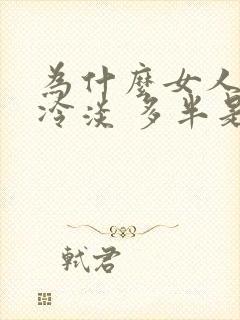 為什麼女人
冷淡 多半是
軾君